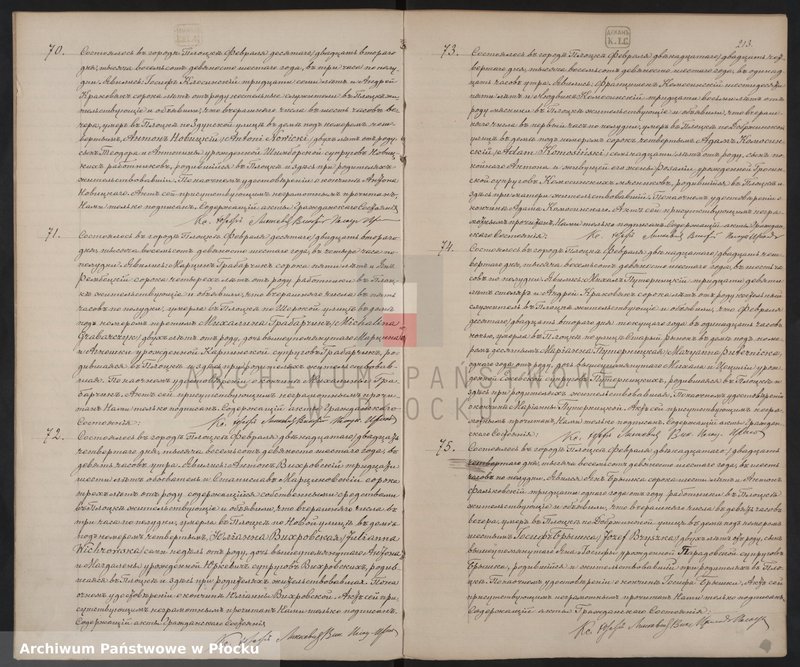 213.
70.
Состоялось въ городѣ Плоцкѣ Февраля десятаго/двадцать втораго
дня, тысяча восемьсотъ девяносто шестаго года, въ три часа по полу-
дни. Явились Іосифъ Клосинскій тридцати семи лѣтъ и Андрей
Краковякъ сорока лѣтъ отъ роду костельные служители въ Плоцкѣ жи-
тельствующіе и объявили, что вчерашняго числа въ шесть часовъ ве-
чера, умеръ въ Плоцкѣ улицѣ въ домѣ подъ номеромъ
четвертымъ, Антонъ Новицкій /Antoni Nowicki/ двухъ лѣтъ отъ роду,
сынъ Теодора и Антонины урожденной супруговъ Новиц-
кихъ работниковъ, родившійся въ Плоцкѣ и здѣсь при родителяхъ
жительствовавшій. По настоящемъ удостовѣреніи о кончинѣ Антона
Новицкаго. Актъ сей присутствующимъ неграмотнымъ прочитанъ,
Нами только подписанъ. Содержащій акты Гражданскаго Состоянія
71.
Состоялось въ городѣ Плоцкѣ Февраля десятаго/двадцать втораго
дня, тысяча восемьсотъ девяносто шестаго года, въ четыре часа по
полудни. Явились Марцинъ Грабарчикъ сорока пяти лѣтъ и
сорока четырехъ лѣтъ отъ роду работники въ Плоц-
кѣ жительствующіе и объявили, что вчерашняго числа въ пять
часовъ по полудни, умерла въ Плоцкѣ по Широкой улицѣ въ домѣ
подъ номеромъ третьимъ Михалина Грабарчикъ /Michalina
Grabarczyk/ двухъ лѣтъ отъ роду, дочь вышеупомянутаго Марцина
и урожденной супруговъ Грабарчикъ, ро-
дившаяся въ Плоцкѣ и здѣсь при родителяхъ жительствовав-
шая. По настоящемъ удостовѣреніи о кончинѣ Михалины Гра-
барчикъ. Актъ сей присутствующимъ неграмотнымъ прочи-
танъ Нами только подписанъ. Содержащій акты Гражданскаго
Состоянія
72.
Состоялось въ городѣ Плоцкѣ Февраля двѣнадцатаго/двадцать
четвертаго дня, тысяча восемьсотъ девяносто шестаго года, въ
девять часовъ утра. Явились Антонъ Вихровскій тридцати
шести лѣтъ и Станиславъ Марциновскій сорока
трехъ лѣтъ отъ роду содержащійся собственными средствами
въ Плоцкѣ жительствующіе и объявили, что вчерашняго числа въ
три часа по полудни, умерла въ Плоцкѣ по Новой улицѣ въ домѣ
подъ номеромъ четвертымъ, Юліанна Вихровская /Julianna
Wichrowska/ семи недѣль отъ роду, дочь вышеупомянутаго Антона
и Магдалены урожденной супруговъ Вихровскихъ, роди-
вшаяся въ Плоцкѣ и здѣсь при родителяхъ жительствовавшая. По на-
стоящемъ удостовѣреніи о кончинѣ Юліанны Вихровской. Актъ сей при-
сутствующимъ неграмотнымъ прочитанъ Нами только подписанъ.
Содержащій акты Гражданскаго Состоянія
73.
Состоялось въ городѣ Плоцкѣ Февраля двѣнадцатаго/двадцать чет-
вертаго дня, тысяча восемьсотъ девяносто шестаго года, въ одинад-
цать часовъ утра. Явились Францишекъ Комосинскій шестидесяти
пяти лѣтъ и Людвикъ Комосинскій тридцати восьми лѣтъ отъ
роду мясники въ Плоцкѣ жительствующіе и объявили, что вчераш-
няго числа въ первый часъ по полудни, умеръ въ Плоцкѣ по Доброинской
улицѣ въ домѣ подъ номеромъ сорокъ четвертымъ Адамъ Комосин-
скій /Adam Komosiński/ семнадцати лѣтъ отъ роду, сынъ по-
койнаго Антона и живущей его жены Розаліи урожденной
супруговъ Комосинскихъ мясниковъ, родившійся въ Плоцкѣ и
здѣсь при матери жительствовавшій. По настоящемъ удостовѣреніи о
кончинѣ Адама Комосинскаго. Актъ сей присутствующимъ негра-
мотнымъ прочитанъ Нами только подписанъ. Содержащій акты Граждан-
скаго Состоянія
74.
Состоялось въ городѣ Плоцкѣ Февраля двѣнадцатаго/двадцать чет-
вертаго дня, тысяча восемьсотъ девяносто шестаго года, въ шесть ча-
совъ по полудни. Явились Михаилъ Путерницкій тридцати девяти
лѣтъ столяръ и Андрей Краковякъ сорока лѣтъ отъ роду костельный
служитель въ Плоцкѣ жительствующіе и объявили, что Февраля
десятаго/двадцать втораго дня текущаго года въ одинадцать часовъ
ночи, умерла въ Плоцкѣ по улицѣ Старый рынокъ въ домѣ подъ номе-
ромъ десятымъ Маріанна Путерницкая /Maryanna Puternicka/
одного года отъ роду, дочь вышеупомянутаго Михаила и урож-
денной супруговъ Путерницкихъ, родившаяся въ Плоцкѣ и
здѣсь при родителяхъ жительствовавшая. По настоящемъ удостовѣреніи о
кончинѣ Маріанны Путерницкой. Актъ сей присутствующимъ негра-
мотнымъ прочитанъ, Нами только подписанъ. Содержащій акты Граждан-
скаго Состоянія
75.
Состоялось въ городѣ Плоцкѣ Февраля двѣнадцатаго/двадцать
четвертаго дня, тысяча восемьсотъ девяносто шестаго года, въ шесть
часовъ по полудни. Явились Янъ Брышка сорока шести лѣтъ и Антонъ
Фалковскій тридцати одного года отъ роду, работники въ Плоцкѣ
жительствующіе и объявили, что вчерашняго числа въ девять часовъ
вечера, умеръ въ Плоцкѣ по Добржинской улицѣ въ домѣ подъ номеромъ
шестымъ Іосифъ Брышка /Józef Bryszka/ двухъ лѣтъ отъ роду, сынъ
вышеупомянутаго Яна и урожденной супруговъ
Брышка, родившійся и жительствовавшій при родителяхъ въ Плоц-
кѣ. По настоящемъ удостовѣреніи о кончинѣ Іосифа Брышки. Актъ сей
присутствующимъ неграмотнымъ прочитанъ Нами только подписанъ.
Содержащій акты Гражданскаго Состоянія
ARCHIWUM PAŃSTWOWE
W PŁOCKU
Archiwum Państwowe w Płocku